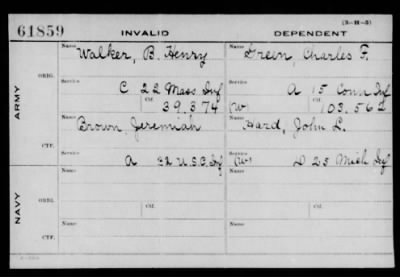 61859 INVALID DEPENDENT (3-11-5)
ARMY
ORIG.
Name Walker, B. Henry Name Green, Charles F.
Service C 22 Mass Inf Service A 15 Conn Inf
Ctf. 39.374 (W) Ctf. 103.562
CTF.
Name Brown, Jeremiah Name Hard, John L.
Service A 32 U.S.C. Inf Service (W) D 25 Mich Inf
NAVY
ORIG.
Name Name
Service Ctf. Service Ctf.
CTF.
Name Name
Service Service